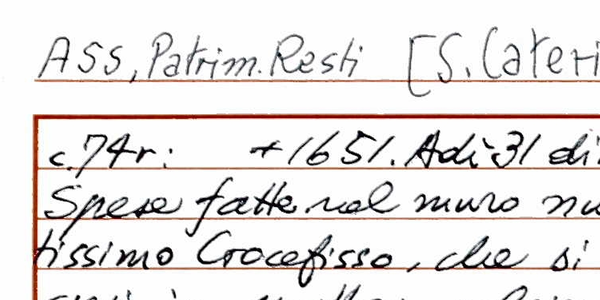 ASS, Patrim. Resti [S. Cateri
c. 74r: + 1651. Adì 31 di
Spese fatte nel muro nu
tissimo Crocefisso, che si